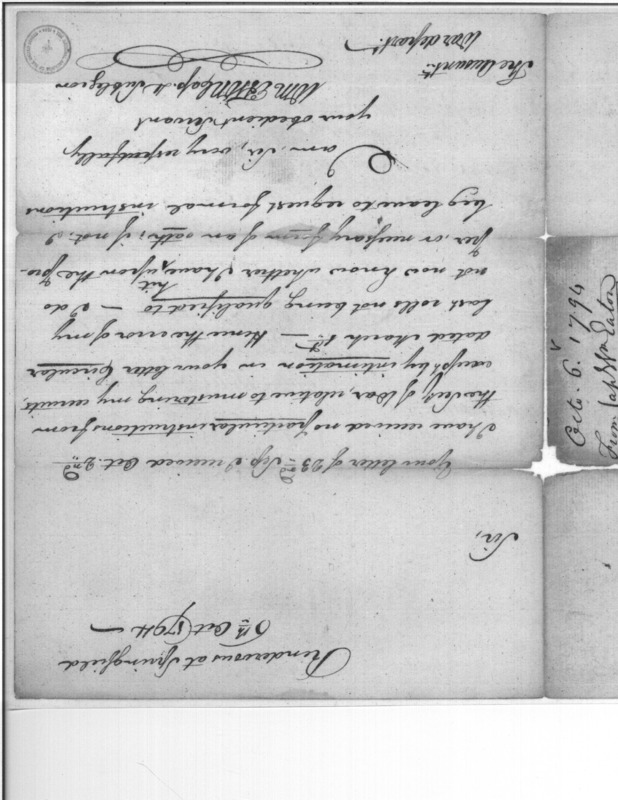 Rendezvous at Springfield
6th Oct. 1794
Sir,
Your letter of 23rd Sep. I received Oct. 2nd
I have received no particular instructions from
the Secy. of War, relative to mustering my recruits,
except by intimation in your letter Circular
dated March 1st — Hence the error of my
last rolls not being qualified to — I do
not now know whether I have hit upon the pro-
per, or necessary form of an oath; if not, I
beg leave to request formal instructions
I
am Sir, very respectfully
your obedient Servant
Wm Eaton Capt. Sublegion
The Accountt.
War depart.
Octo. 6. 1794
From Capt Wm Eaton